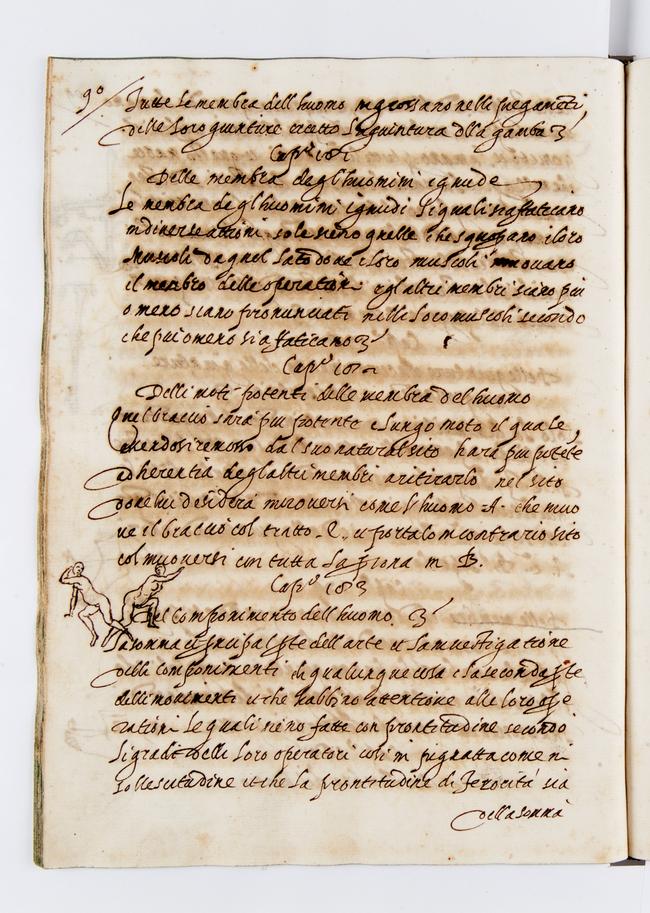 90
Tutte le membra dell huomo ingrossano nelli piegamenti
delle loro giunture eccetto la giuintura della gamba
Cap.º 181
Delle membra degl'huomini ignude
Le membra degl'huomini ignudi li quali s'affaticano
in diverse attioni sole sieno quelle che scuoprano i loro
Muscoli da quel lato dove i loro muscoli muovano
il membro delle operationi e gl altri membri siano piu
o meno siano pronunciati nelli loro muscoli secondo
che piu o meno s'affaticano
Cap.º 182
Delli moti potenti delle membra del huomo
quel braccio sará piu potente e lungo moto il quale
essendosi remosso dal suo natural sito hará piu potente
adherentia degl altri membri a ritirarlo nel sito
dove lui desidera muoversi come l'huomo A. che muo
ve il braccio col tratto .C. e portalo in contrario sito
col muoversi con tutta la persona in B.
Cap.º 183
Del Componimento dell huomo.
La somma et principal parte dell arte e la investigatione
delli componimenti di qualunque cosa e la seconda parte
delli movimenti è che habbino attentione alle loro ope
rationi le quali sieno fatte con prontitudine secondo
li gradi delli loro operatori cosi in pigritia come in
sollecitudine et che la prontitudine di ferocitá sia
della somma